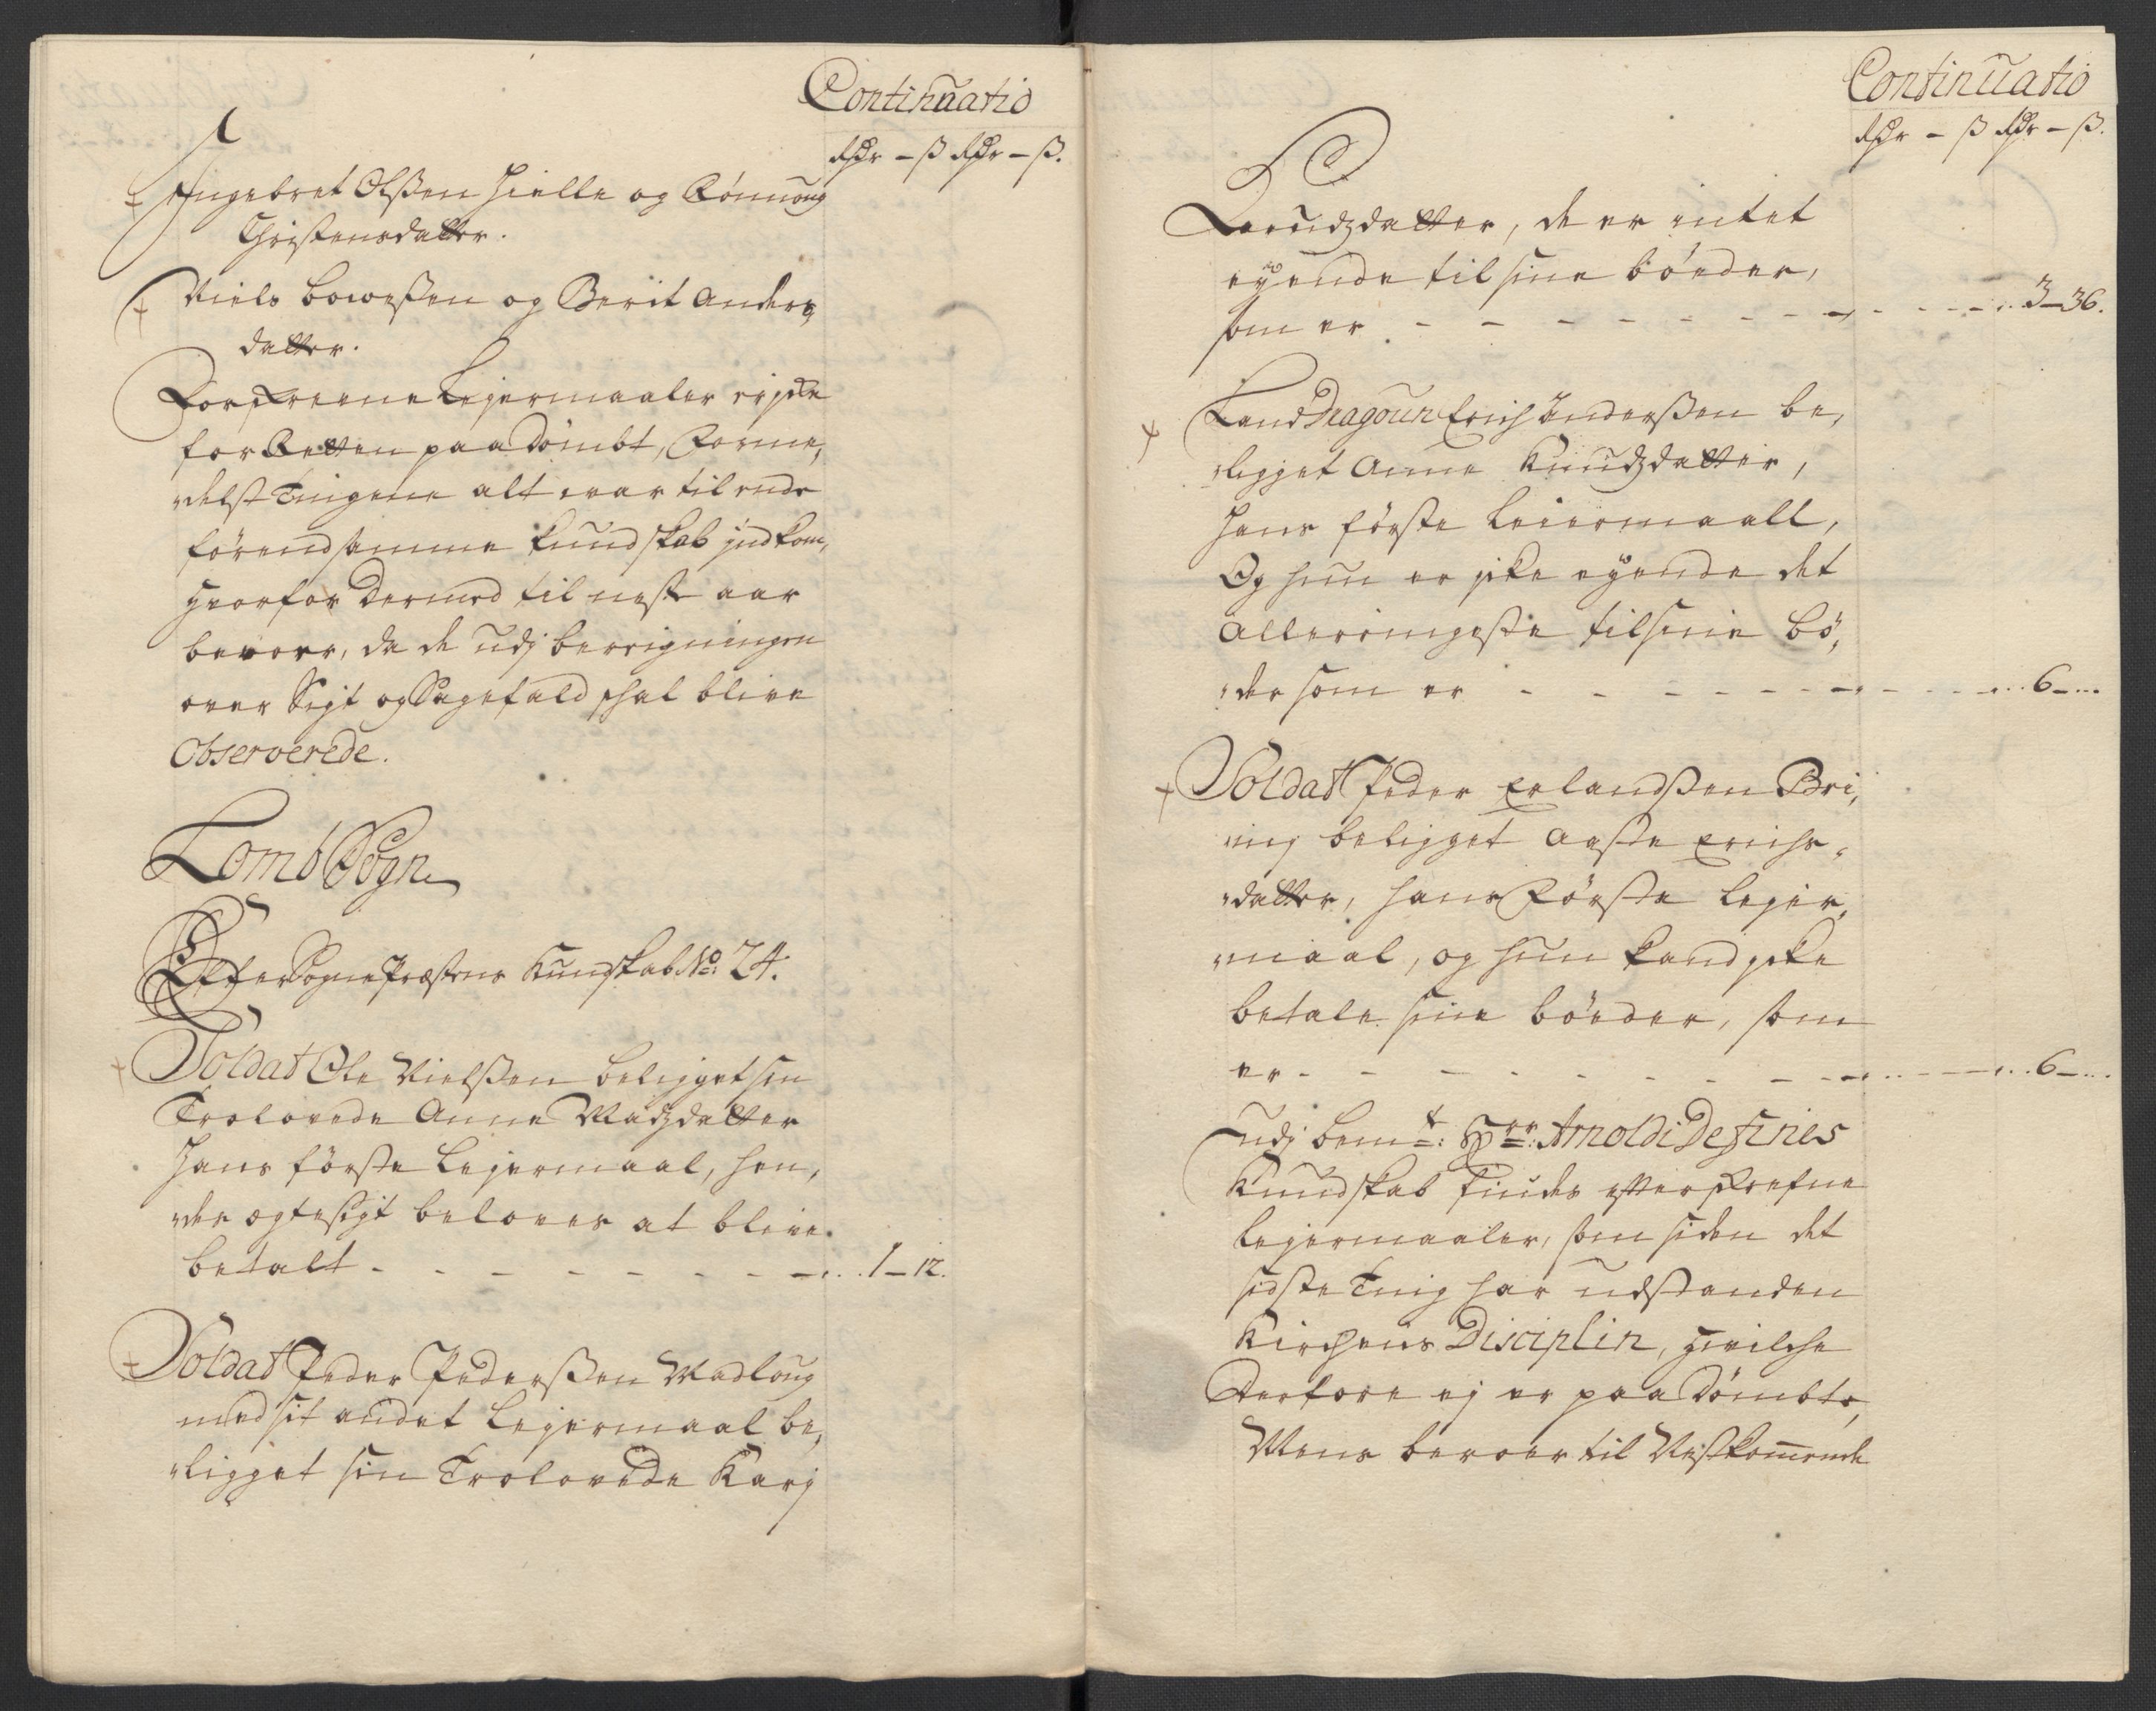 Continuatio
Rdr - ß Rdr - ß.
Ingebret Olßen Hielle og Rønnoug
Christensdatter.
Niels Boweßen og Berit Anders,
datter.
Forskrevne Lejermaaler er icke
for Retten paadømbt, Forme,
delst Tingene alt var til ende
førend samme kundskab indkom,
hvorfor dermed til neste aar
beroer, da de udj beregningen
over Sigt og Sagefald skal blive
Observerede.
Lomb Sogn
Efter Sogne Præstens Kundskab No: 24.
Soldat Ole Nielßen beligget sin
Trolovede Anne Madzdatter
hans første Lejermaal, hen,
des ægtesigt beloves at blive
betalt - - - - - - - - 1 - 12.
Soldat Peder Pederßen Madloug
med sit andet Lejermaal be,
ligget sin Trolovede Karj
Continuatio
Rdr - ß Rdr - ß.
Knudzdatter, de er intet
eyende til sine bøeder,
som er - - - - - - - - 3 - 36.
Land Dragoun Erich Anderßen be,
ligget Anne Knudzdatter,
hans første Leiermaall,
Og hun er icke eyende det
allerringeste til sine bø,
der som er - - - - - - - - 6 - ...
Soldat Peder Erlandßen Bri,
nig beligget Aaste Erichs,
datter, hans Første Lejer,
maal, og hun kand icke
betale sine bøeder, som
er - - - - - - - - 6 - ...
Udj bemt: Hrr: Arnoldi Definies
Kundskab findes efterskrefne
Lejermaaler, som siden det
sidste Ting har udstanden
Kirchens Disciplin, hvilche
derfore ej er paadømbte,
Mens beroer til Nestkommende